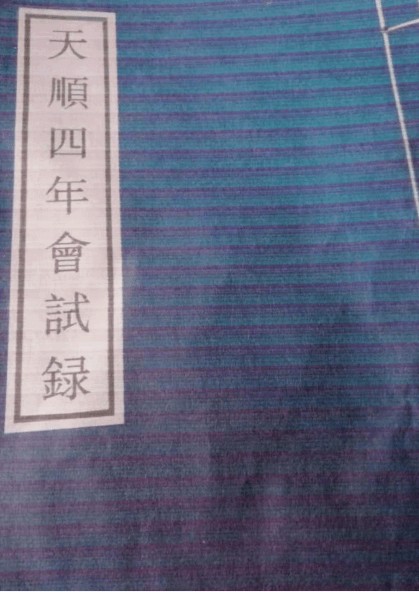 天順四年會試録